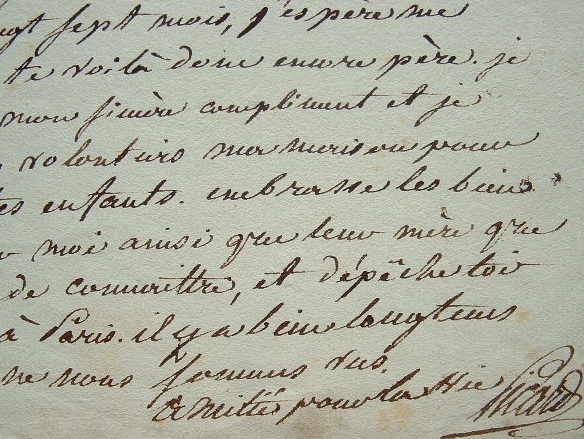 ngt sept mois, j'espère me
te voilà donc encore père. je
mon sincère compliment et je
volontiers ma maison pour
tes enfants. embrasse les bien
moi ainsi que leur mère que
de connoittre, et dépêche toi
à Paris. il y a bien longtems
ne nous sommes vus.
amitié pour la vie
Picard